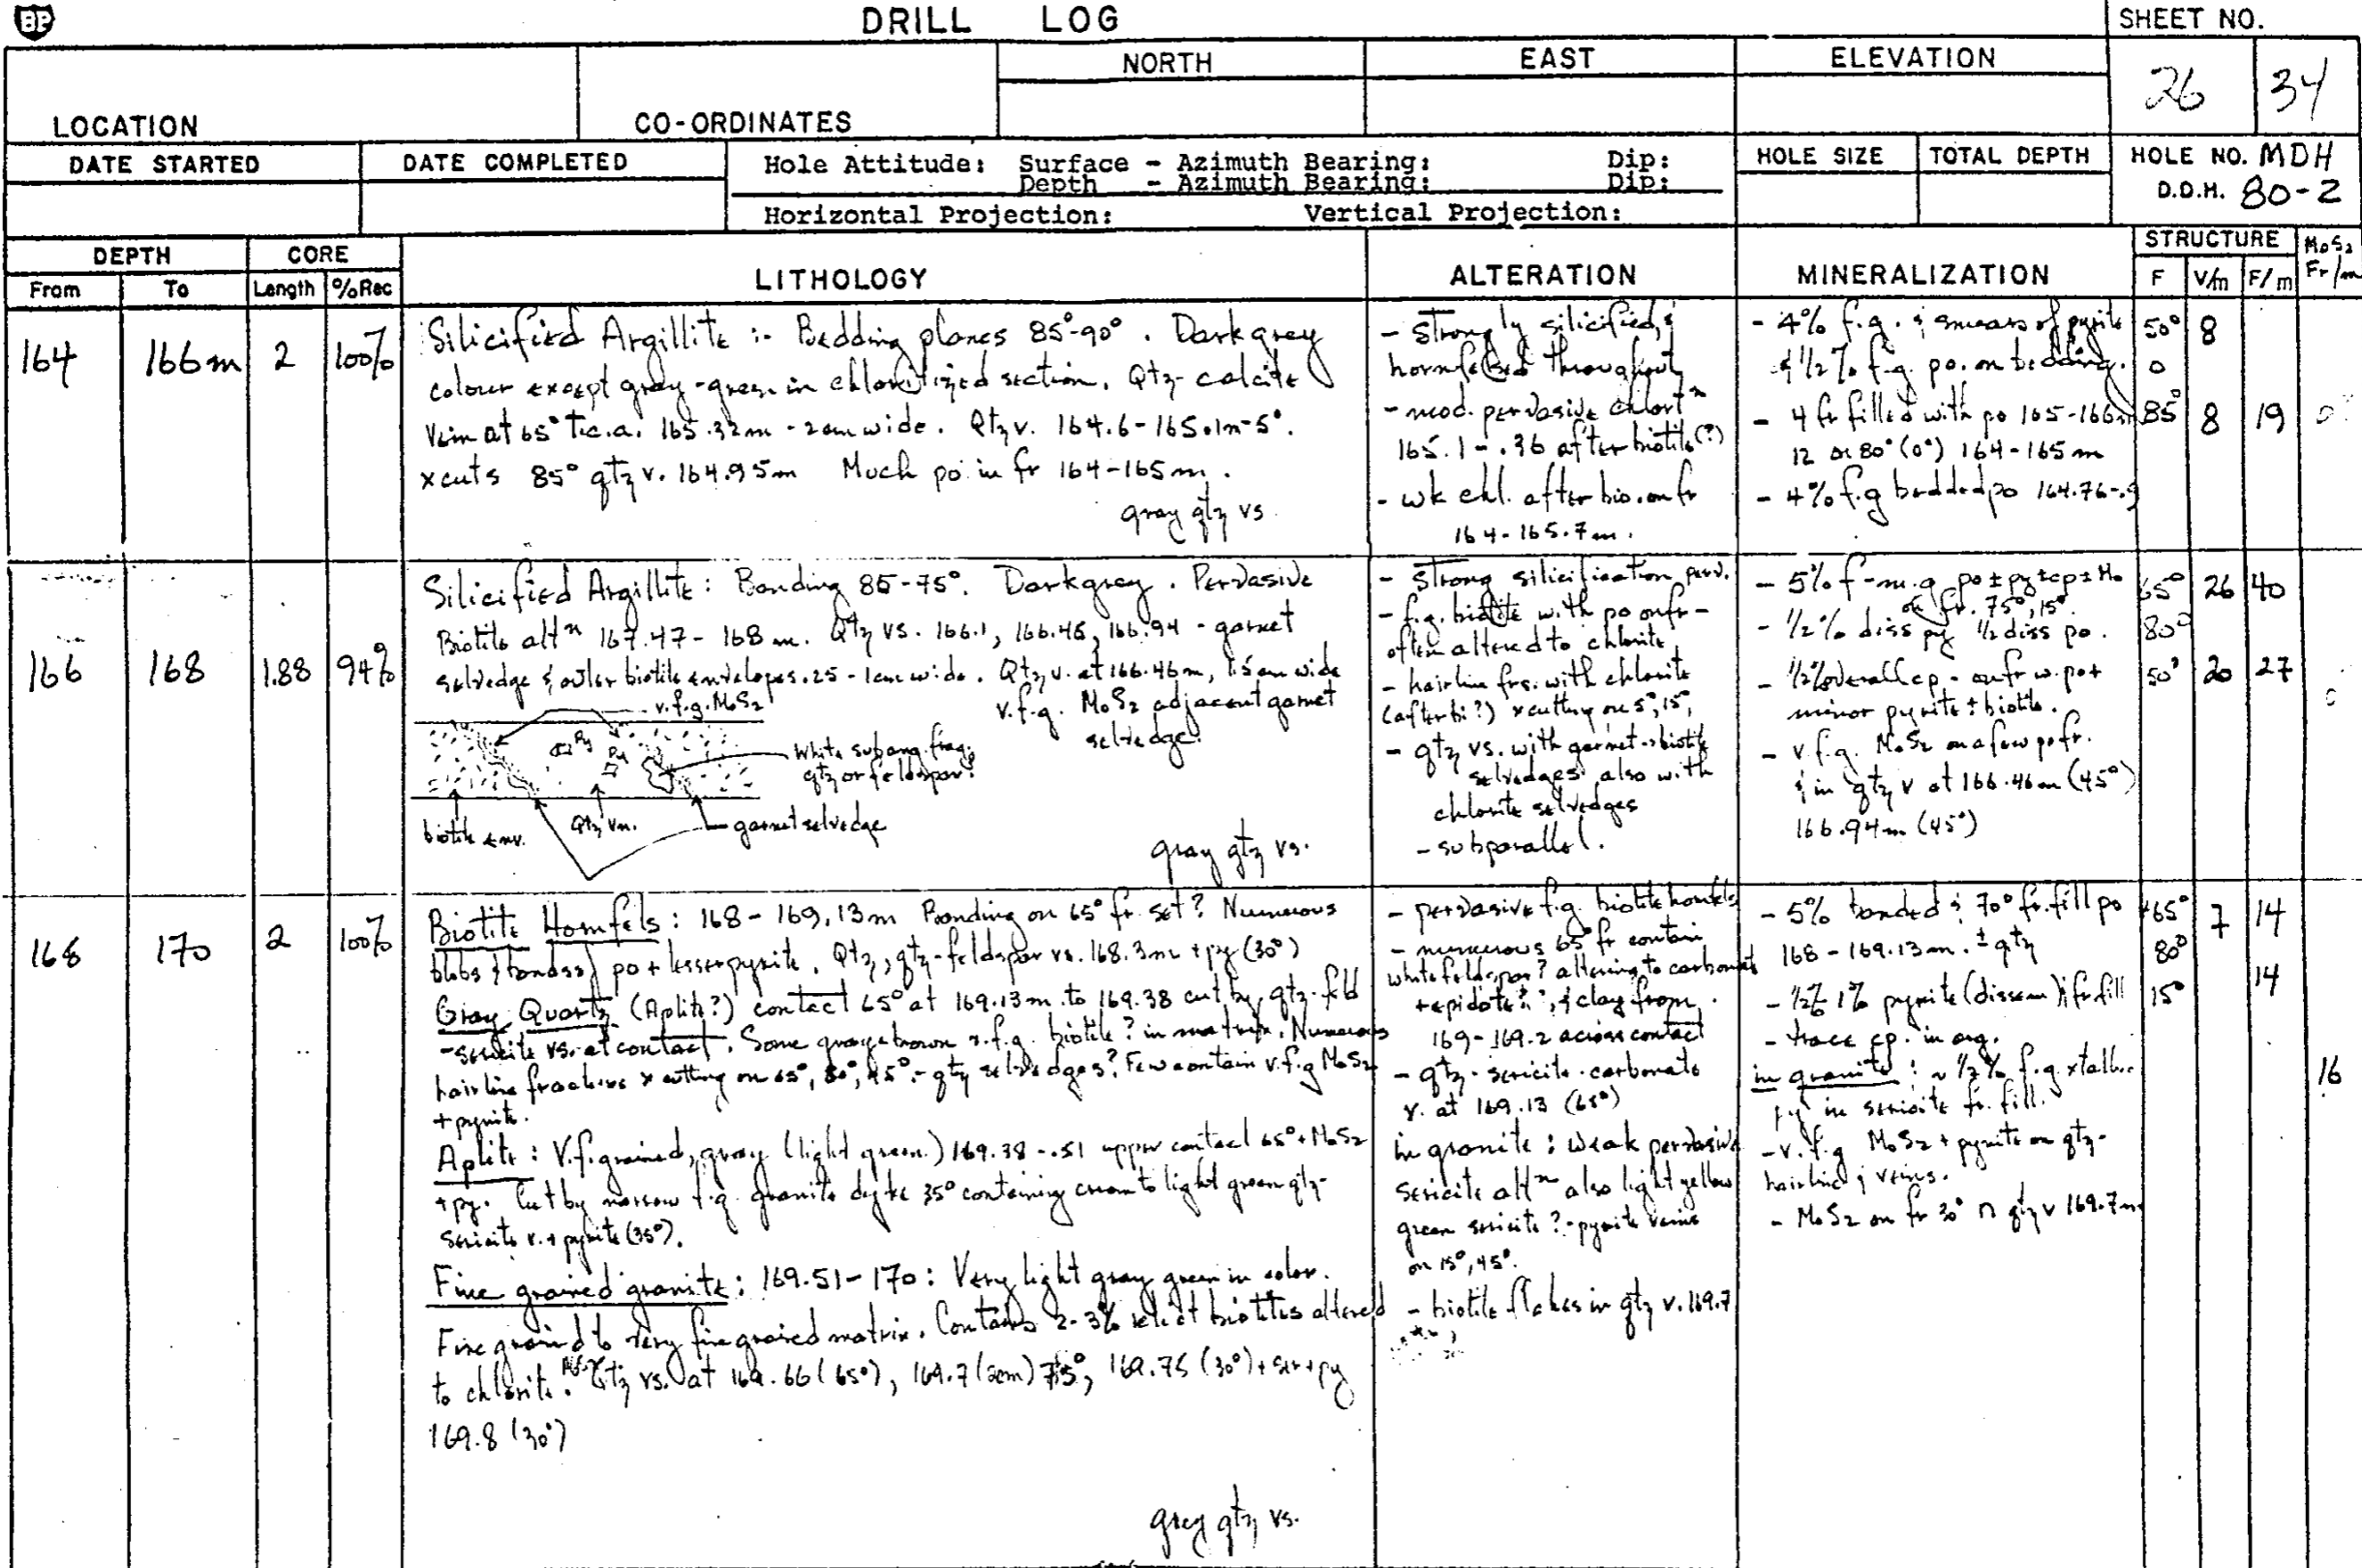 BP
DRILL LOG
SHEET NO.
26 34
LOCATION
CO-ORDINATES
NORTH
EAST
ELEVATION
DATE STARTED
DATE COMPLETED
Hole Attitude: Surface - Azimuth Bearing: Dip:
Depth - Azimuth Bearing: Dip:
Horizontal Projection: Vertical Projection:
HOLE SIZE
TOTAL DEPTH
HOLE NO. MDH
D.D.H. 80-2
DEPTH
From To
CORE
Length %Rec
LITHOLOGY
ALTERATION
MINERALIZATION
STRUCTURE
F V/m F/m
MoS2
Fr/m
164 166m 2 100%
Silicified Argillite :- Bedding planes 85°-90°. Dark grey
colour except gray-green in chloritized section. Qtz-calcite
Vein at 65° T.c.a. 165.32m - 2cm wide. Qtz v. 164.6-165.1m-5°.
xcuts 85° qtz v. 164.95m Much po in fr 164-165m.
gray qtz vs.
- Strongly silicified, &
hornfelsed throughout
- mod. pervasive chlortⁿ
165.1-.36 after biotite(?)
- wk chl. after bio. on fr
164-165.7m.
- 4% f.g. & smears of pyrite
& 1/2% f.g. po. on bedding.
- 4 fr filled with po 165-166m
12 at 80° (0°) 164-165m
- 4% f.g bedded po 164.76-.9
50° 8
0
85° 8 19 0
166 168 1.88 94%
Silicified Argillite: Banding 85-75°. Dark grey. Pervasive
Biotite altⁿ 167.47-168m. Qtz vs. 166.1, 166.46, 166.94 - garnet
selvedge & outer biotite envelopes .25-1cm wide. Qtz v. at 166.46m, 1.5cm wide
v.f.g. MoS2 adjacent garnet
selvedge.
v.f.g. MoS2
Py
Py
White subang. frag.
qtz or feldspar?
biotite env.
Qtz vn.
garnet selvedge
gray qtz vs.
- Strong silicification perv.
- f.g. biotite with po on fr -
often altered to chlorite
- hairline frs. with chlorite
(after bi?) xcutting on 5°, 15°,
- qtz vs. with garnet → biotite
selvedges also with
chlorite selvedges
- subparallel.
- 5% f-m.g po ± py ± cp ± Mo
on fr. 75°, 15°
- 1/2% diss py 1/2 diss po.
- 1/2% overall cp - on fr w. po +
minor pyrite ± biotite.
- v.f.g. MoS2 on a few po fr.
& in qtz v at 166.46m (45°)
166.94m (45°)
65° 26 40
80°
50° 20 27
0
168 170 2 100%
Biotite Hornfels: 168-169.13m Banding on 65° fr. set? Numerous
blobs & bands po + lesser pyrite. Qtz, qtz-feldspar vs. 168.3m + py (30°)
Gray Quartz (Aplite?) contact 65° at 169.13m to 169.38 cut by qtz-feld
-sericite vs. at contact. Some gray-brown v.f.g. biotite? in matrix. Numerous
hairline fractures xcutting on 65°, 80°, 45° - qtz selvedges? Few contain v.f.g MoS2
+ pyrite.
Aplite: V.f.grained, gray (light green) 169.38-.51 upper contact 65° + MoS2
+ py. Cut by narrow f.g. granite dyke 35° containing cream to light green qtz-
sericite v. + pyrite (35°).
Fine grained granite: 169.51-170: Very light gray green in color.
Fine grained to very fine grained matrix. Contains 2-3% relict biotites altered
to chlorite. Qtz vs. at 169.66 (65°), 169.7 (2cm) 75°, 169.75 (30°) + ser + py
169.8 (30°)
gray qtz vs.
- pervasive f.g. biotite hornfels
- numerous 65° fr contain
white feldspar? altering to carbonate
+ epidote?, & clay from
169-169.2 across contact
- qtz-sericite-carbonate
v. at 169.13 (65°)
in granite: Weak pervasive
Sericite altⁿ also light yellow
green sericite?-pyrite veins
on 15°, 45°.
- biotite flakes in qtz v. 169.7
- 5% banded & 70° fr. fill po
168-169.13m. ± qtz
- 1/2-1% pyrite (dissem) & fr fill
- trace cp. in arg.
in granite: ~ 1/2% f.g xtalline
py in sericite fr. fill.
- v.f.g MoS2 + pyrite on qtz-
hairline & veins.
- MoS2 on fr 30° ∩ qtz v 169.7m
65° 7 14
80°
15° 14
16